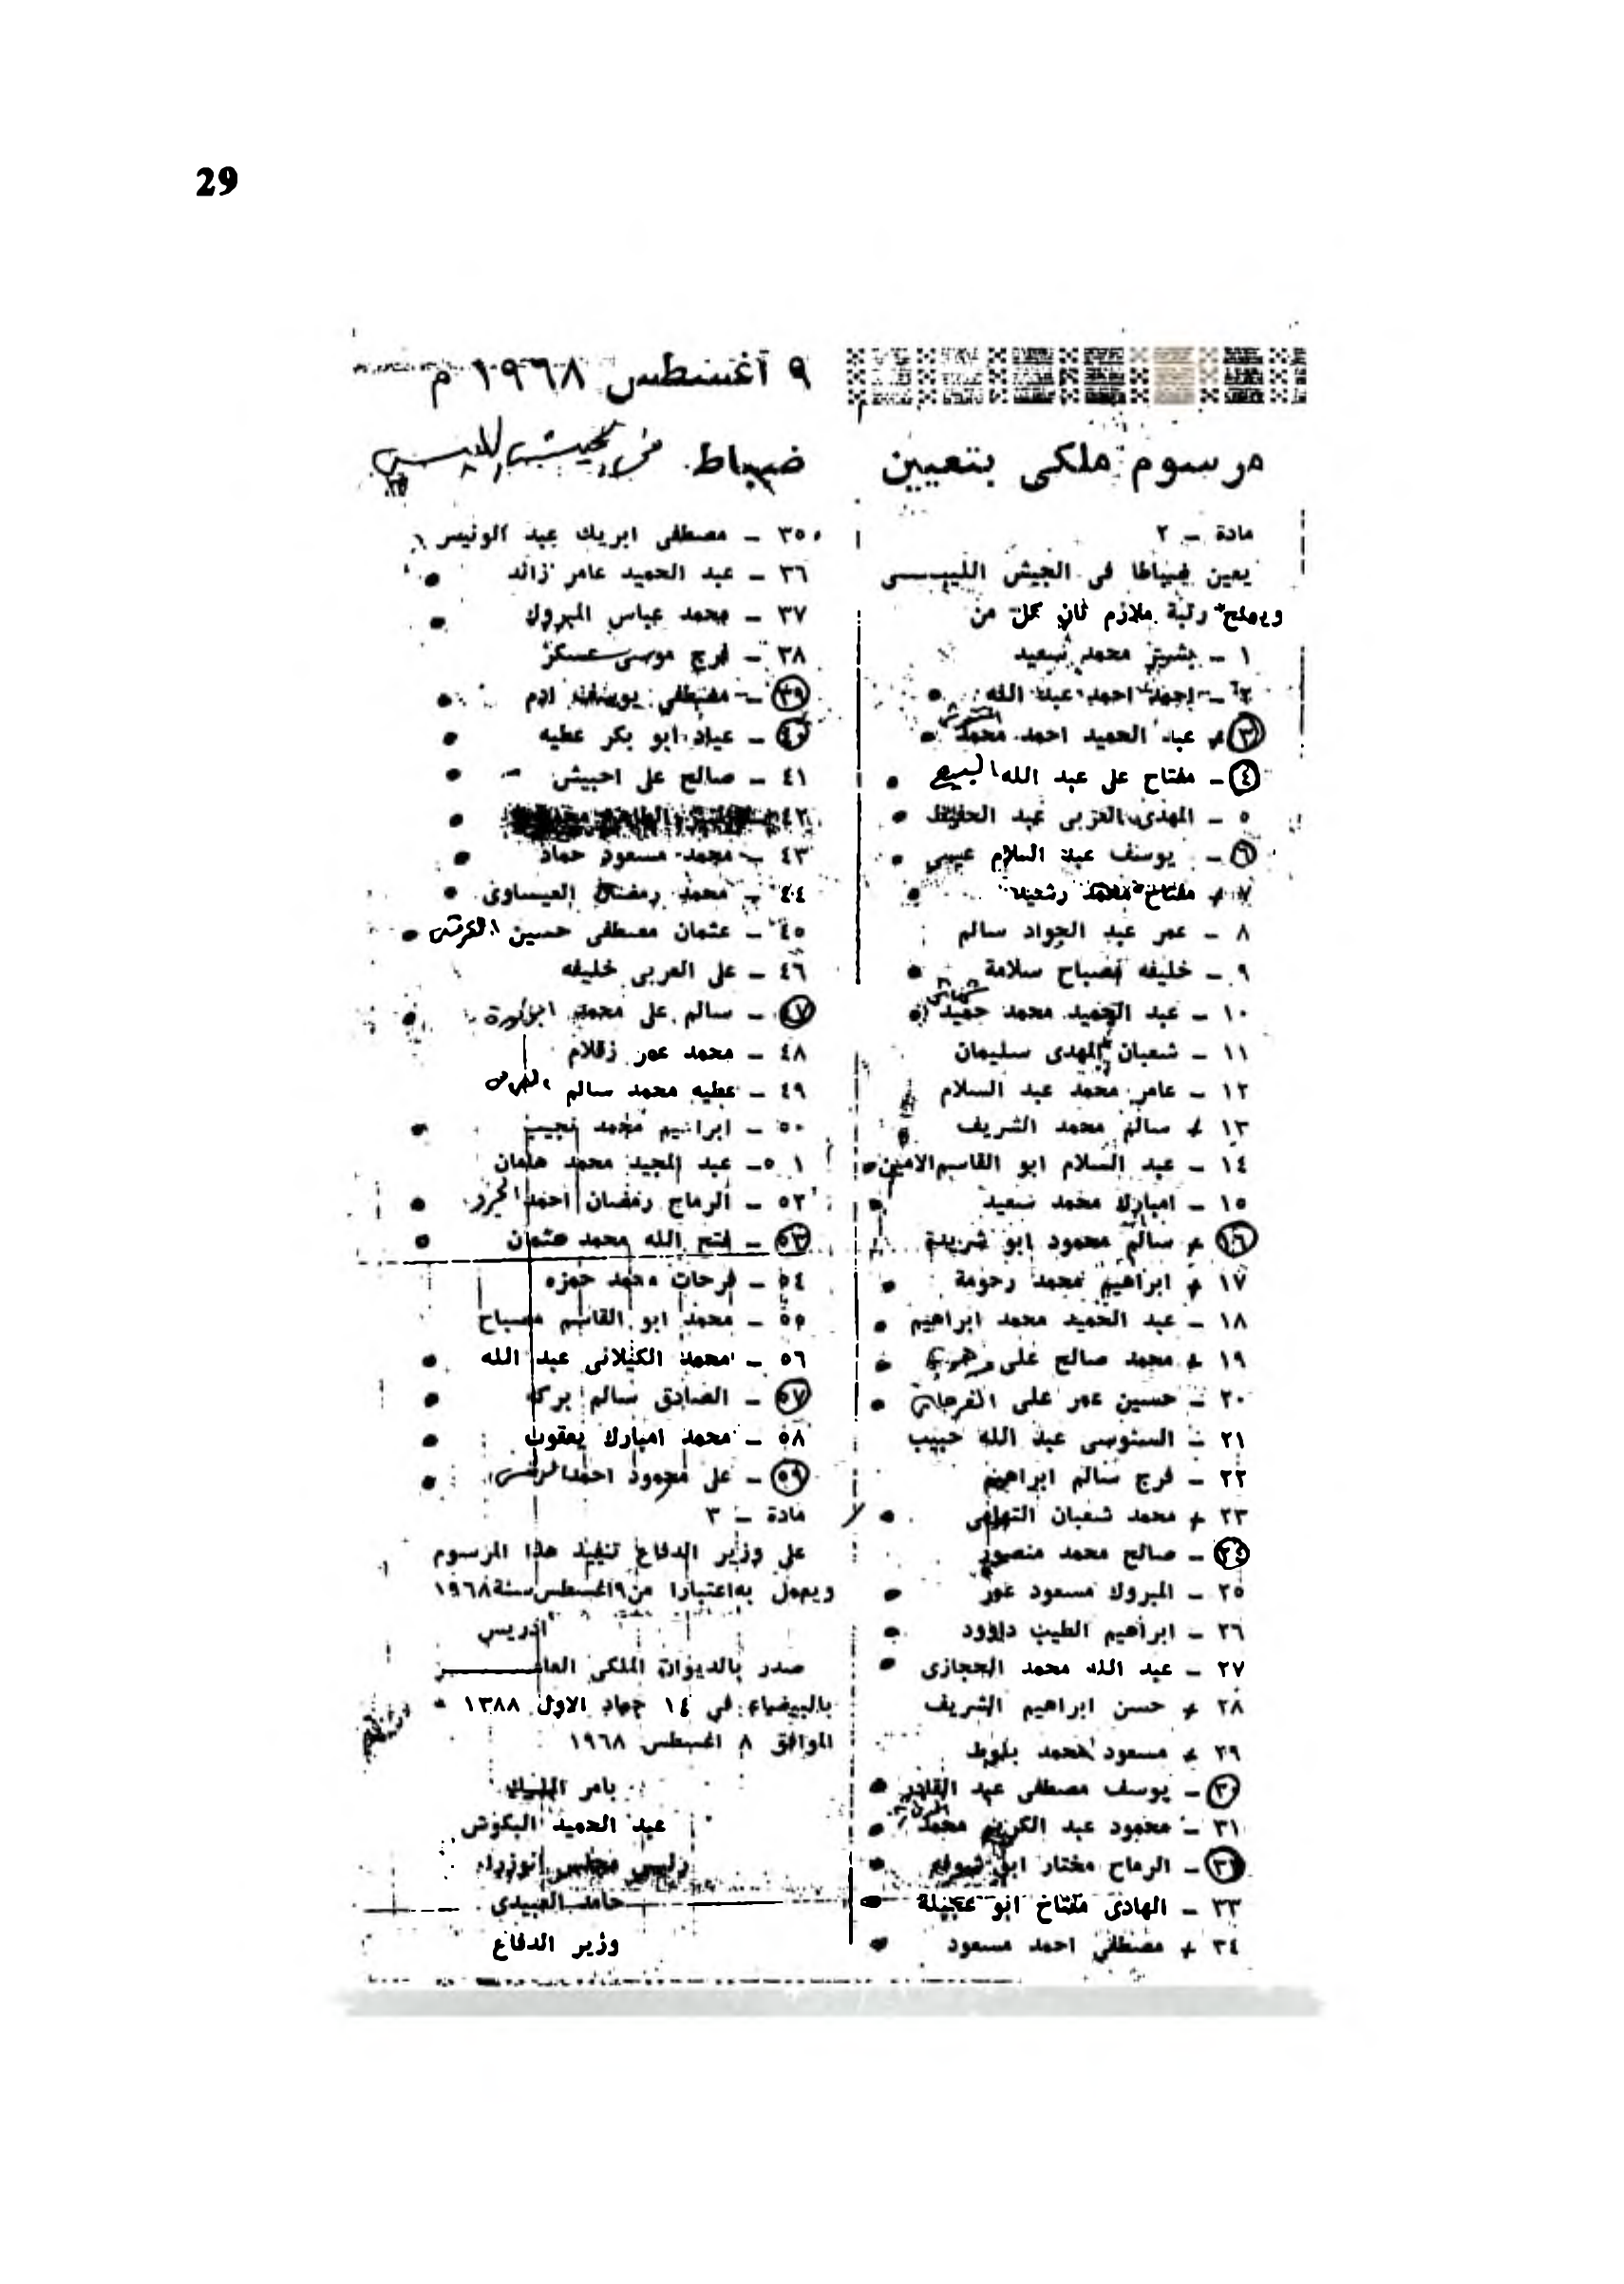 29
٩ أغسطس ١٩٦٨ م
مرسوم ملكى بتعيين ضباط فى الجيش الليبي
مادة - ٢
يعين ضباطا فى الجيش الليبـــى
ويمنح رتبة ملازم ثان كل من
١ - بشير محمد سعيد
٢ - احمد احمد عبد الله
٣ + عبد الحميد احمد محمد
٤ - مفتاح على عبد الله
٥ - المهدى العربى عبد الحفيظ
٦ - يوسف عبد السلام عيسى
٧ + مفتاح محمد رشيد
٨ - عمر عبد الجواد سالم
٩ - خليفه مصباح سلامة
١٠ - عبد الحميد محمد حميد
١١ - شعبان المهدى سليمان
١٢ - عامر محمد عبد السلام
١٣ + سالم محمد الشريف
١٤ - عبد السلام ابو القاسم الامين
١٥ - امبارك محمد سعيد
١٦ + سالم محمود ابو شريدة
١٧ + ابراهيم محمد رحومة
١٨ - عبد الحميد محمد ابراهيم
١٩ + محمد صالح على
٢٠ - حسين عمر على الفرجانى
٢١ - السنوسى عبد الله حبيب
٢٢ - فرج سالم ابراهيم
٢٣ + محمد شعبان التهامى
٢٤ - صالح محمد منصور
٢٥ - المبروك مسعود
٢٦ - ابراهيم الطيب داوود
٢٧ - عبد الله محمد الحجازى
٢٨ + حسن ابراهيم الشريف
٢٩ + مسعود محمد بلوط
٣٠ - يوسف مصطفى عبد القادر
٣١ - محمود عبد الكريم محمد
٣٢ - الرماح مختار ابو
٣٣ - الهادى مفتاح ابو عجيلة
٣٤ + مصطفى احمد مسعود
٣٥ - مصطفى ابريك عبد الونيس
٣٦ - عبد الحميد عامر زائد
٣٧ - محمد عباس المبروك
٣٨ - فرج موسى عسكر
٣٩ - مصطفى يوسف ادم
٤٠ - عياد ابو بكر عطيه
٤١ - صالح على احبيش
٤٢
٤٣ - محمد مسعود حماد
٤٤ - محمد رمضان العيساوى
٤٥ - عثمان مصطفى حسين
٤٦ - على العربى خليفه
٤٧ - سالم على محمد
٤٨ - محمد عمر زقلام
٤٩ - عطيه محمد سالم
٥٠ - ابراهيم محمد نجيب
٥١ - عبد المجيد محمد
٥٢ - الرماح رمضان احمد
٥٣ - فتح الله محمد عثمان
٥٤ - فرحات محمد حمزه
٥٥ - محمد ابو القاسم مصباح
٥٦ - محمد الكيلانى عبد الله
٥٧ - الصادق سالم بركه
٥٨ - محمد امبارك يعقوب
٥٩ - على محمود احمد
مادة - ٣
على وزير الدفاع تنفيذ هذا المرسوم
ويعمل به اعتبارا من ٩ اغسطس سنة ١٩٦٨
ادريس
صدر بالديوان الملكى العامر
بالبيضاء فى ١٤ جماد الاول ١٣٨٨
الموافق ٨ اغسطس ١٩٦٨
بامر الملك
عبد الحميد البكوش
رئيس مجلس الوزراء
حامد العبيدى
وزير الدفاع